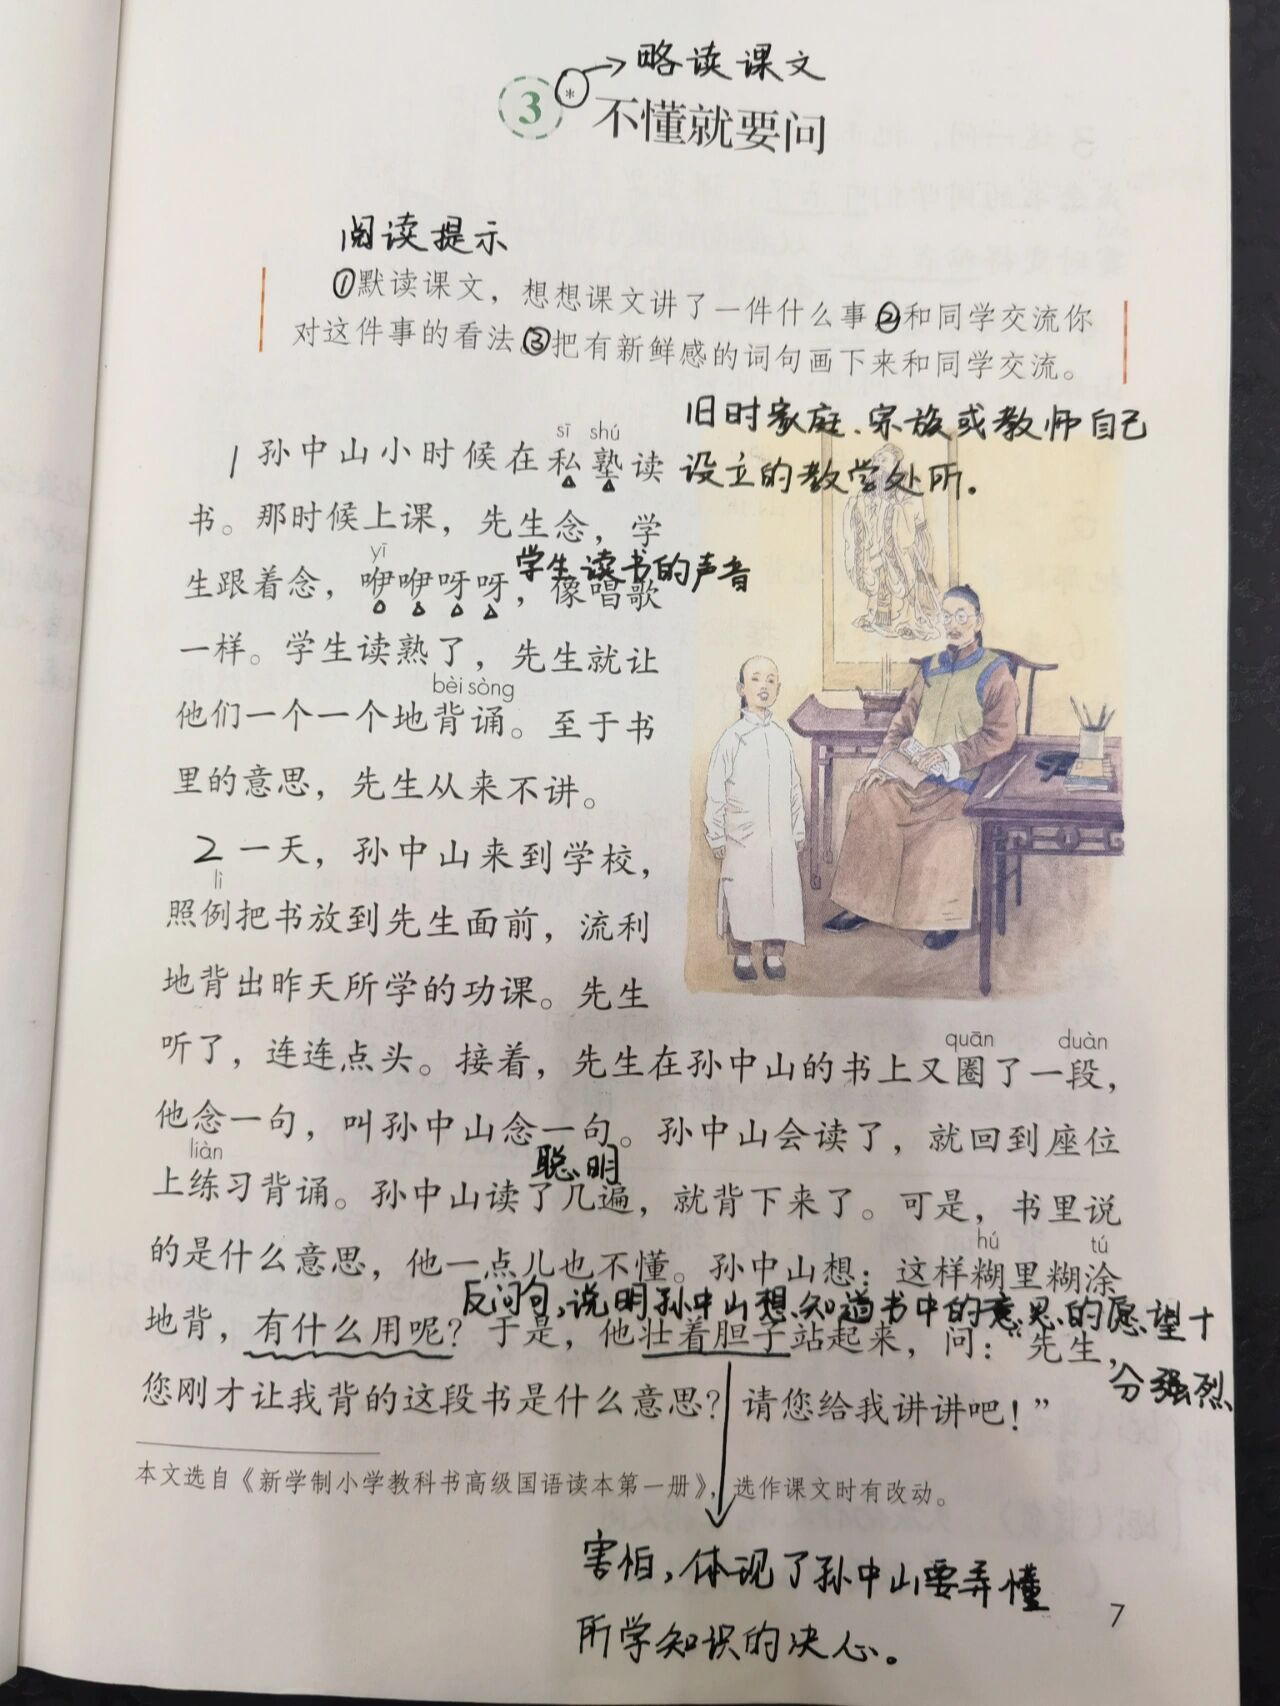 略读课文
3 *
不懂就要问
阅读提示
①默读课文，想想课文讲了一件什么事②和同学交流你
对这件事的看法。③把有新鲜感的词句画下来和同学交流。
旧时家庭、宗族或教师自己
设立的教学处所。
sī shú
1 孙中山小时候在私塾读
书。那时候上课，先生念，学
学生读书的声音
yī
生跟着念，咿咿呀呀，像唱歌
一样。学生读熟了，先生就让
bèi sòng
他们一个一个地背诵。至于书
里的意思，先生从来不讲。
2 一天，孙中山来到学校，
lì
照例把书放到先生面前，流利
地背出昨天所学的功课。先生
quān duàn
听了，连连点头。接着，先生在孙中山的书上又圈了一段，
他念一句，叫孙中山念一句。孙中山会读了，就回到座位
liàn
聪明
上练习背诵。孙中山读了几遍，就背下来了。可是，书里说
hú tú
的是什么意思，他一点儿也不懂。孙中山想：这样糊里糊涂
反问句，说明孙中山想知道书中的意思的愿望十
分强烈
地背，有什么用呢？于是，他壮着胆子站起来，问：“先生，
您刚才让我背的这段书是什么意思？请您给我讲讲吧！”
本文选自《新学制小学教科书高级国语读本第一册》，选作课文时有改动。
害怕，体现了孙中山要弄懂
所学知识的决心。
7